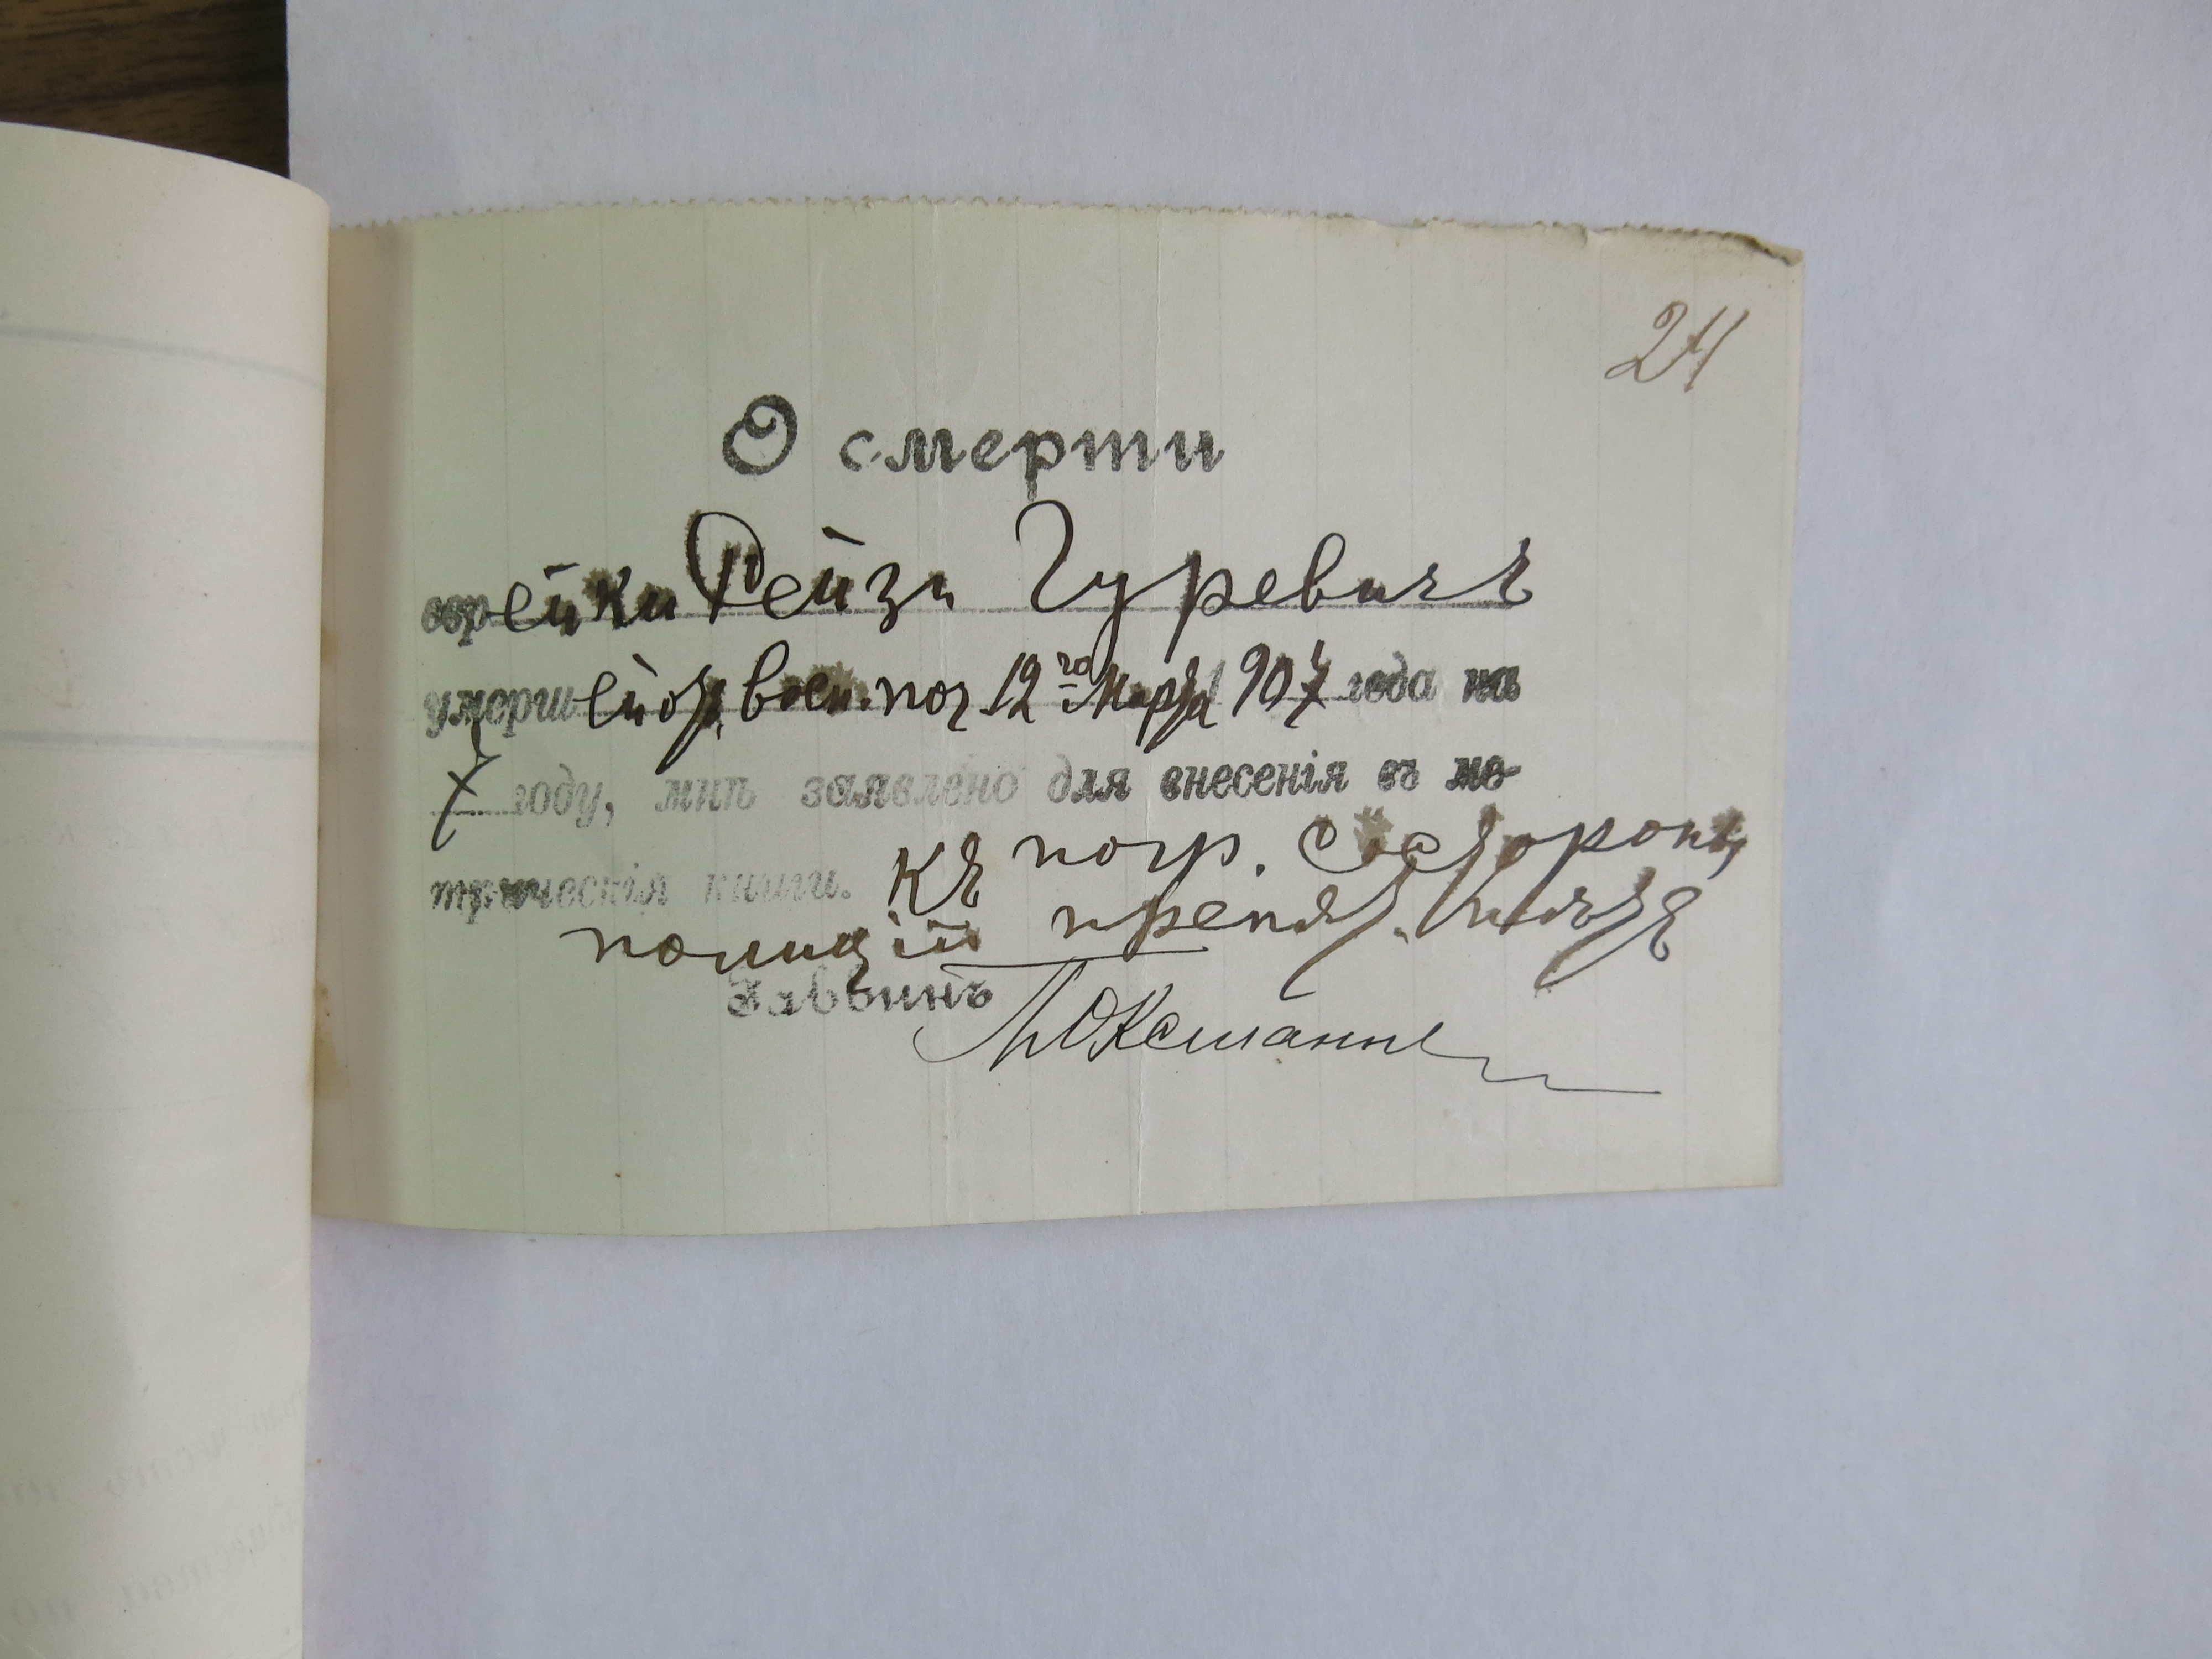 24
О смерти
еврейки Рейзи Гуревичъ
умершей от восп. поч 12го Марта 1907 года на
7 году, мнѣ заявлено для внесенія въ ме-
трическія книги. Къ погр. со стороны
полиціи препят. нѣтъ
Раввинъ